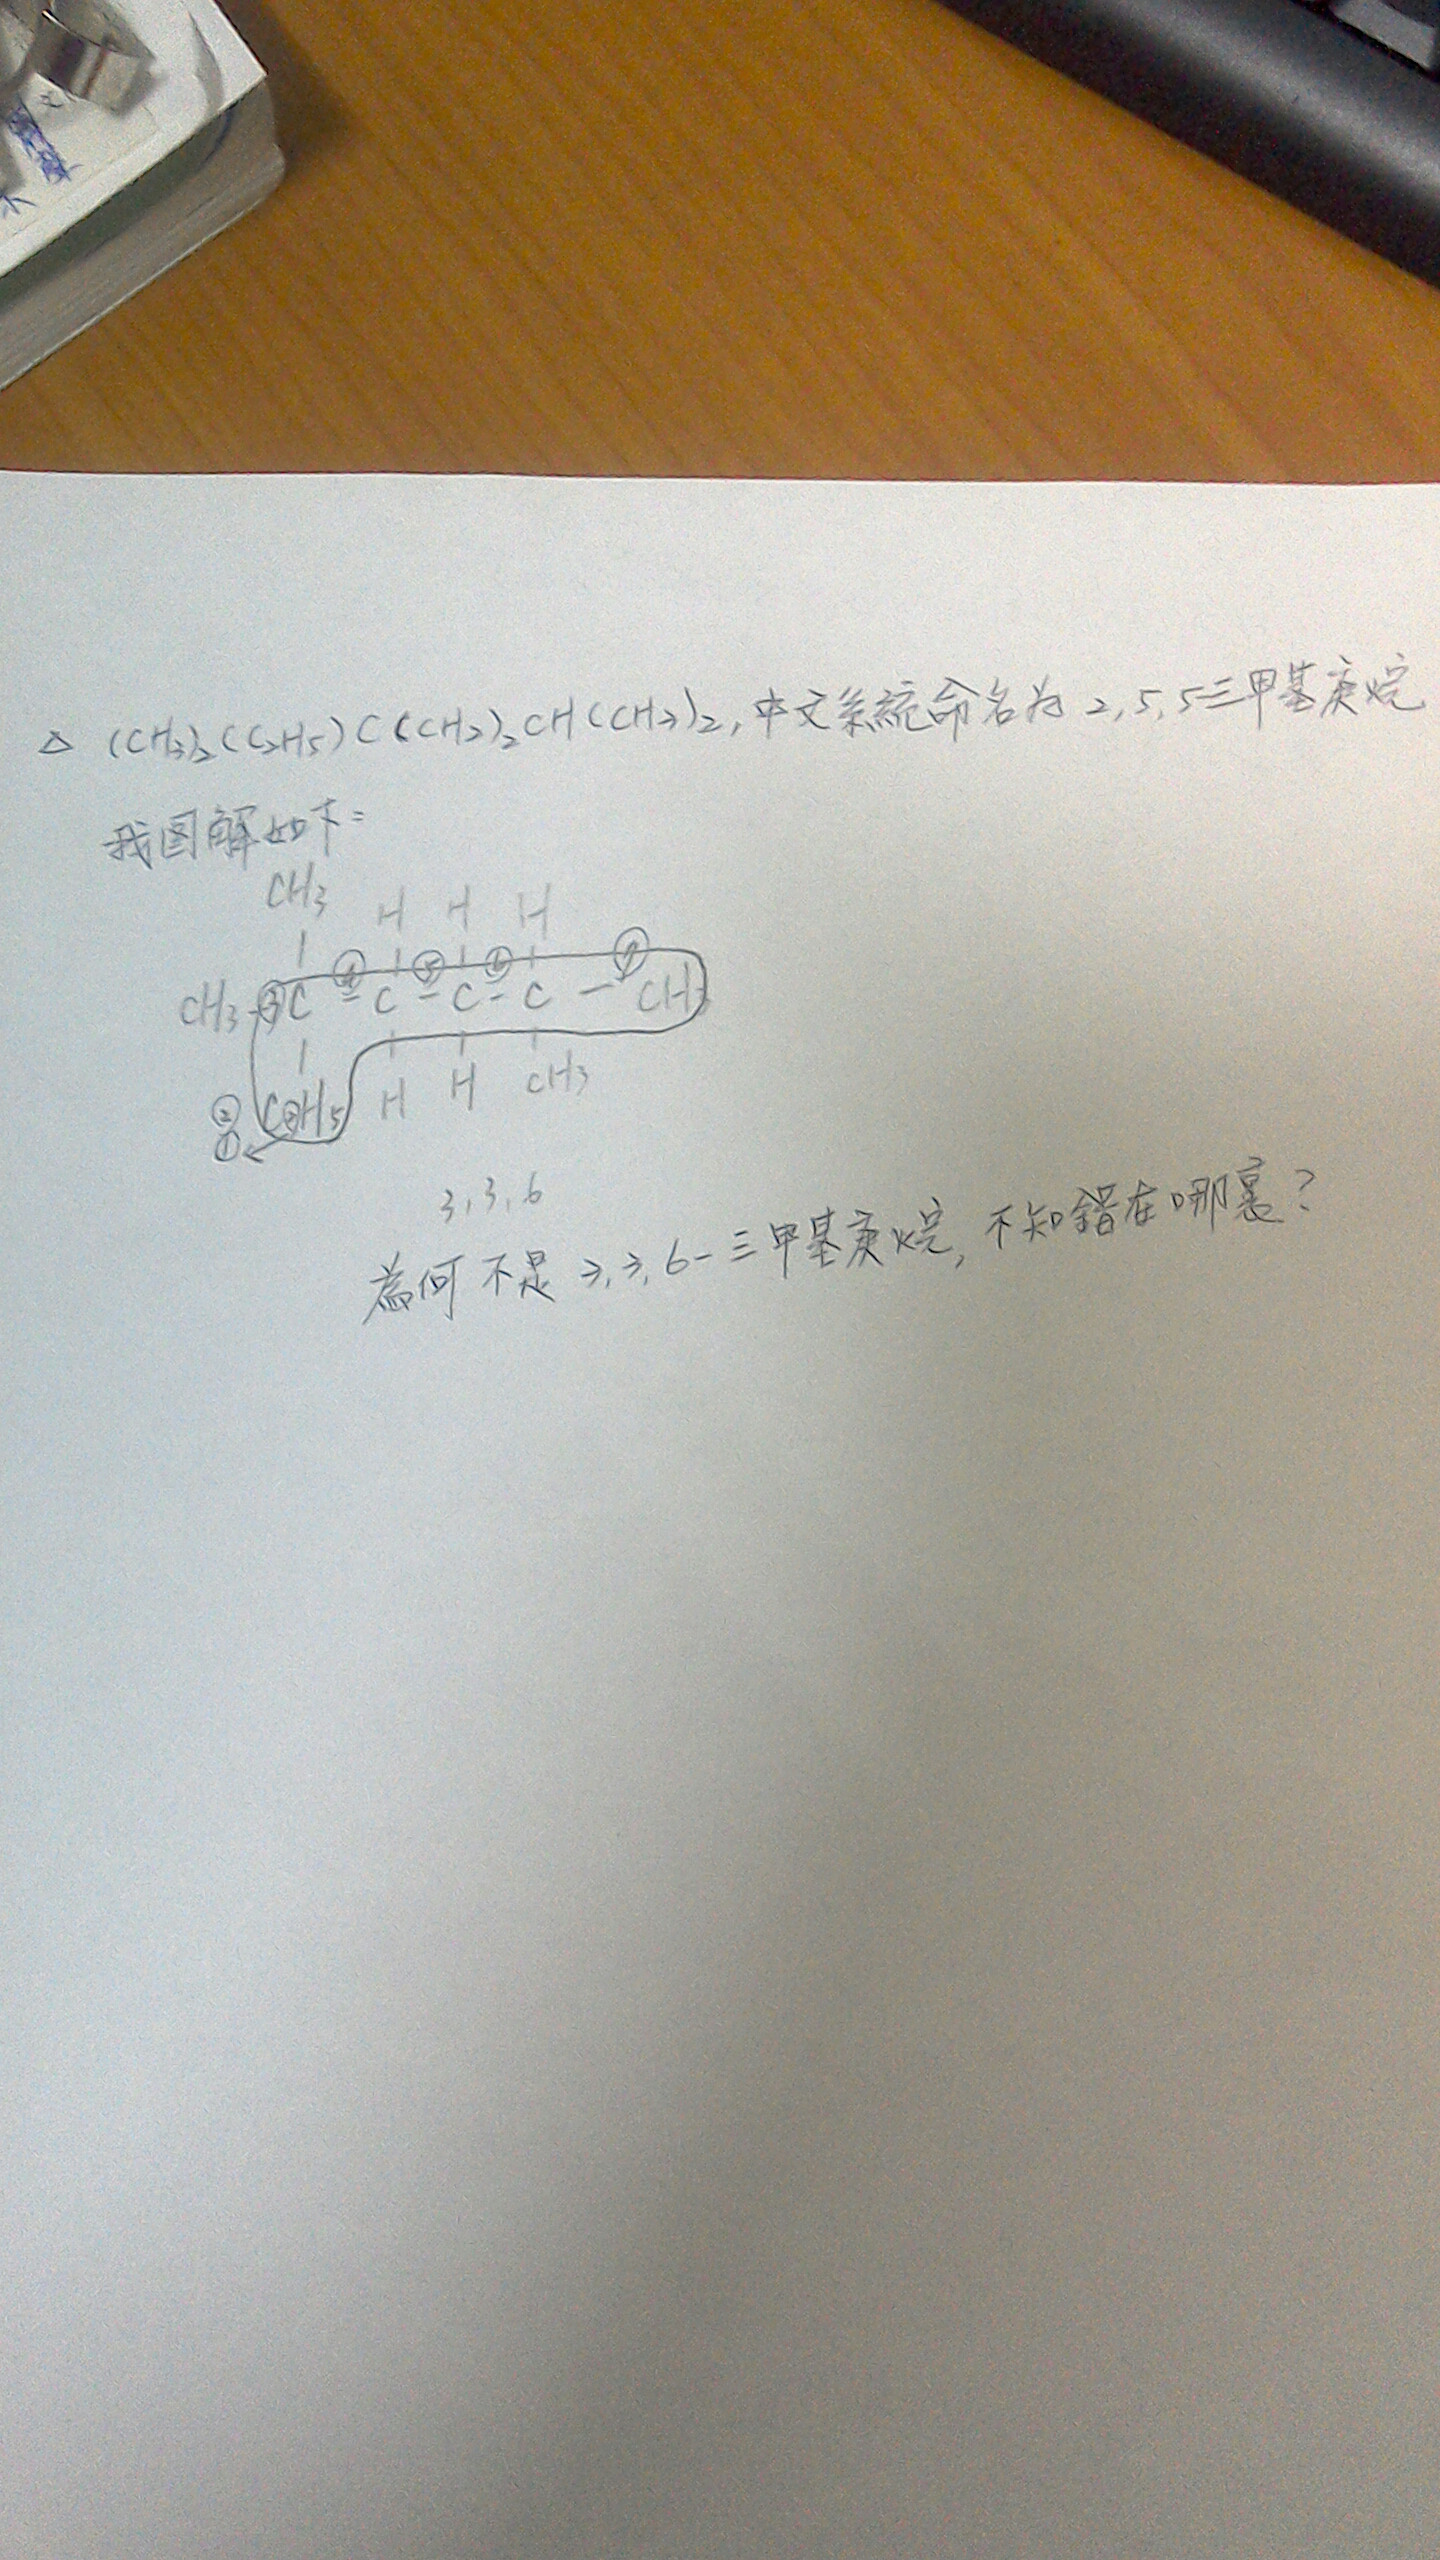 △ (CH3)2(C2H5)C(CH2)2CH(CH3)2,中文系統命名为 2,5,5三甲基庚烷
我图解如下:
CH3 H H H
| ④ | ⑤ | ⑥ | ⑦
CH3-③C - C - C - C - CH3
| | | |
② C2H5 H H CH3
①
3,3,6
為何不是 3,3,6-三甲基庚烷,不知錯在哪裏?